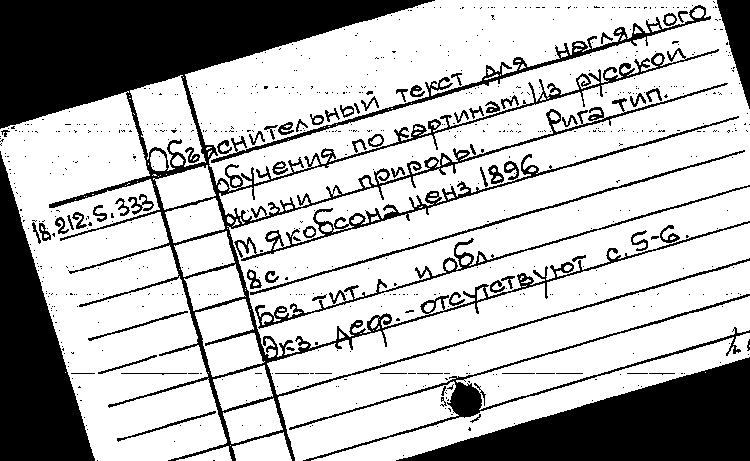 Объяснительный текст для наглядного
18.212.5.333
обучения по картинам. Из русской
жизни и природы. Рига, тип.
М. Якобсона, ценз. 1896.
8 с.
Без тит. л. и обл.
Экз. деф. - отсутствуют с. 5-6.